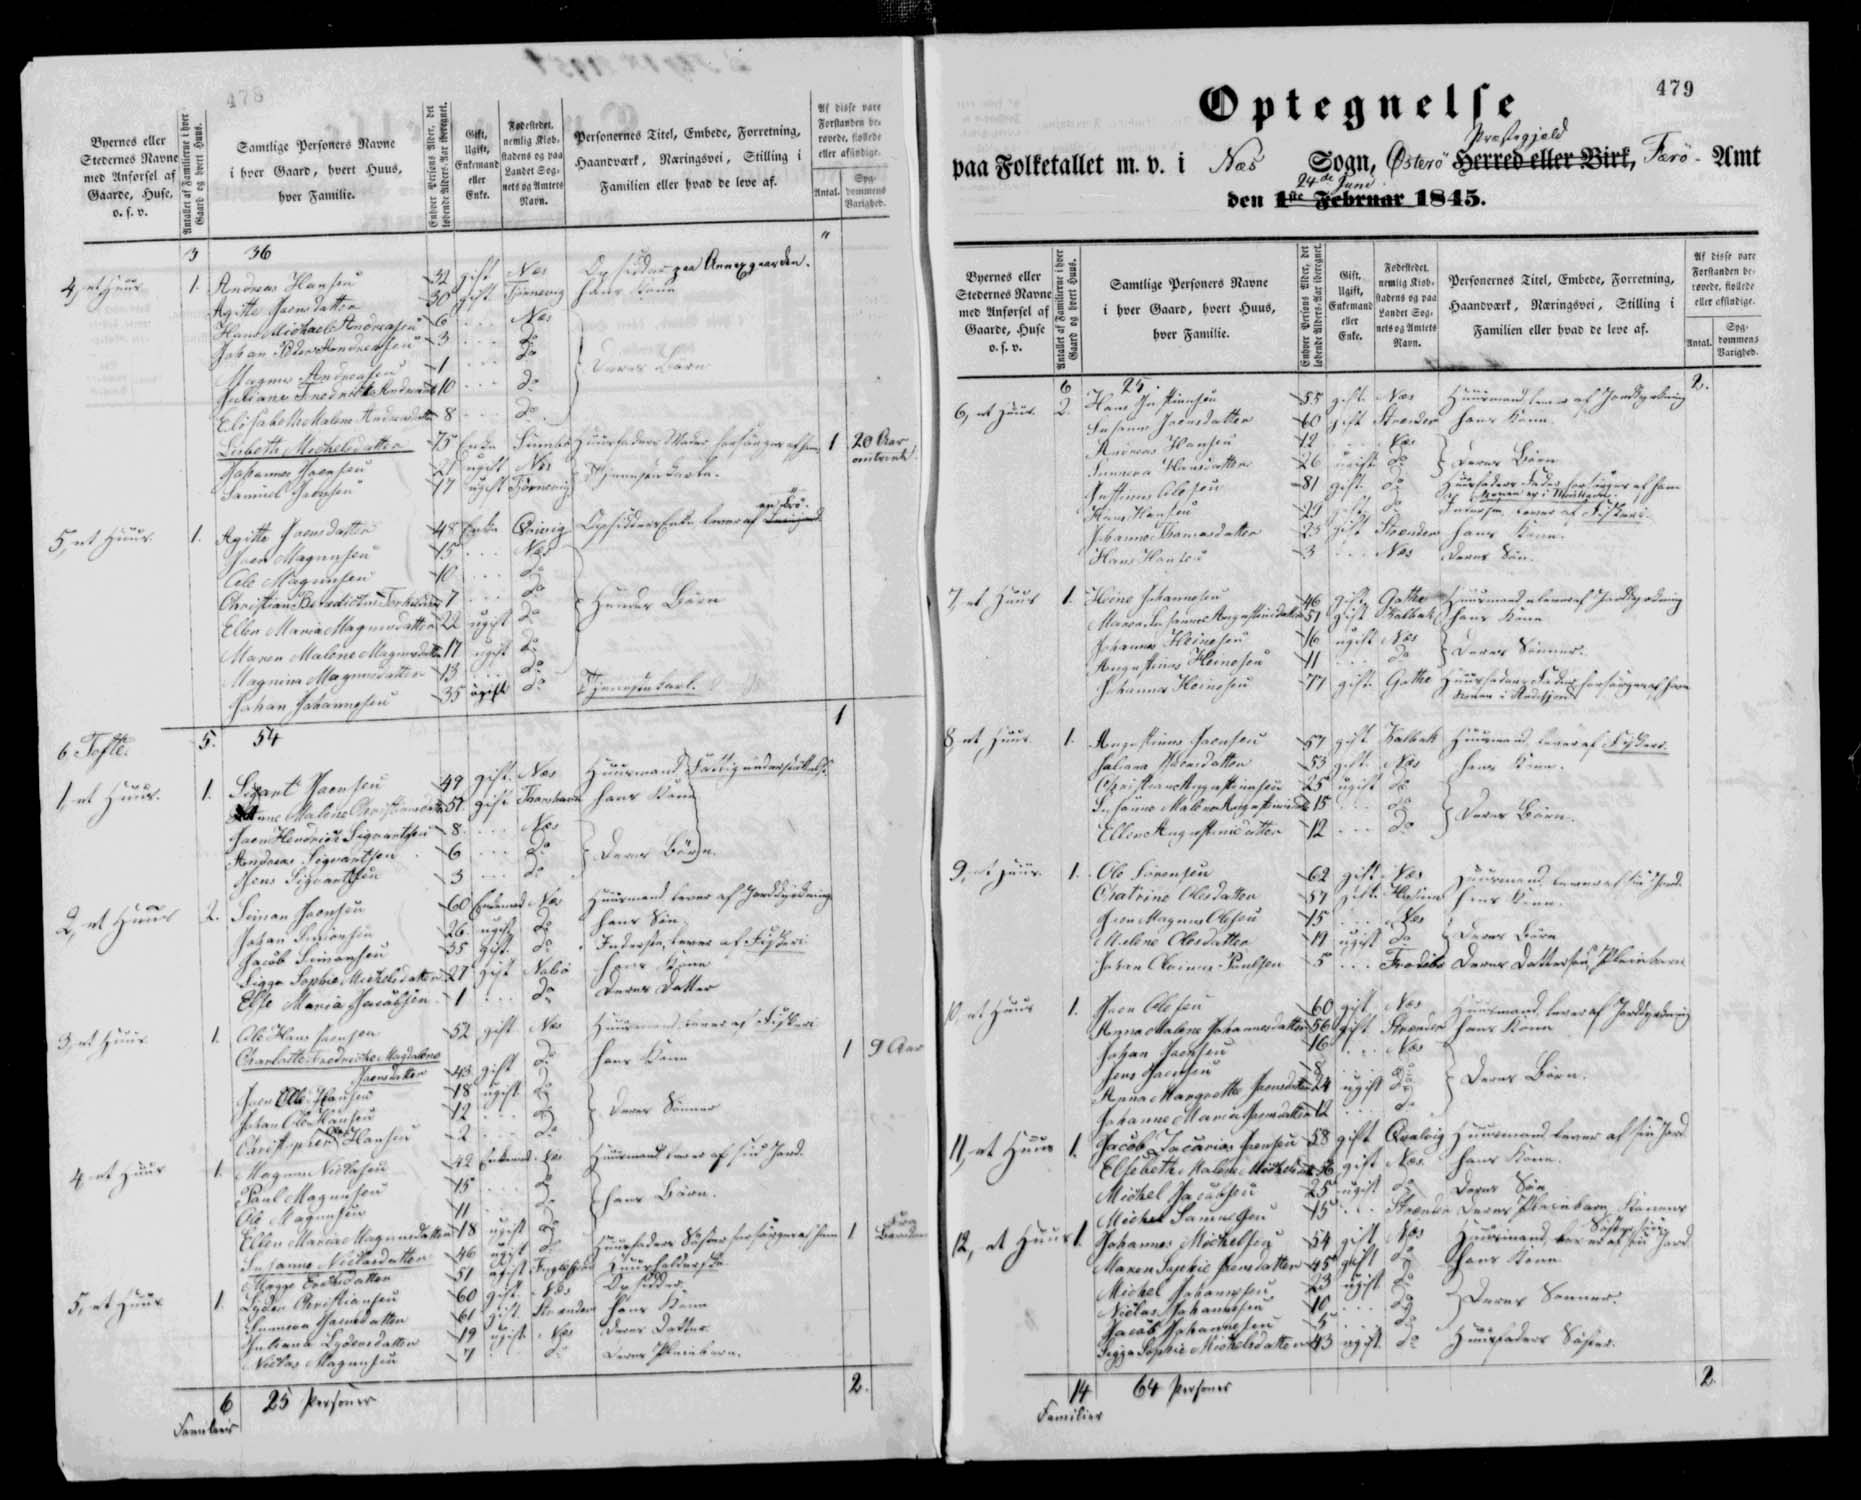 478
Byernes eller
Stedernes Navne
med Anførsel af
Gaarde, Huse,
o. s. v.
Antallet af Familierne i hver
Gaard og hvert Huus.
Samtlige Personers Navne
i hver Gaard, hvert Huus,
hver Familie.
Enhver Persons Alder, det
løbende Alders-Aar iberegnet.
Gift,
Ugift,
Enkemand
eller
Enke.
Fødestedet,
nemlig Kiøb-
stadens og paa
Landet Sog-
nets og Amtets
Navn.
Personernes Titel, Embede, Forretning,
Haandværk, Næringsvei, Stilling i
Familien eller hvad de leve af.
Af disse vare
Forstanden be-
røvede, fiollede
eller afsindige.
Antal.
Syg-
dommens
Varighed.
3 36 "
4, et Huus 1. Andreas Hansen 32 gift Næs Opsidder paa Annexgaarden.
Agitte Joensdatter 30 gift Tjørnevig hans Kone
Hans Michael Andreasen 6 Næs
Johan Peder Andreasen 3 do
Magnus Andreasen 1 do Deres Børn
Juliane Fredrikke 10 do
Elisabeth Malene Andreasdatter 8 do
Lisbeth Michelsdatter 75 Enke Huusfaders Moder forsørges af ham 1 20 Aar
Johannes Joensen 21 ugift Næs
Samuel Joensen 17 ugift Tjørnevig Tjenestekarle.
5, et Huus. 1. Agitte Joensdatter 48 Enke Qvivig Opsidders Enke lever af
Joen Magnusen 15 Næs
Ole Magnusen 10 do
Christian Benedictus 7 do Hendes Børn
Ellen Maria Magnusdatter 22 ugift do
Maren Malene Magnusdatter 17 ugift do
Magnina Magnusdatter 13 do
Johan Johannesen 35 ugift do Tjenestekarl.
6 Tofte. 5. 54 1
1, et Huus. 1. Sigvart Joensen 49 gift Næs Huusmand Fattigunderstøttelse.
Anne Malene Christiansdatter 51 gift Thorshavn hans Kone
Joen Hendrick Sigvartsen 8 Næs
Andreas Sigvartsen 6 do Deres Børn.
Jens Sigvartsen 3 do
2, et Huus 2. Simon Joensen 60 Enkemand Næs Huusmand lever af Jorddyrkning
Johan Simonsen 26 ugift do hans Søn
Jacob Simonsen 35 gift do Inderste, lever af Fiskeri
Sigga Sophie Michelsdatter 27 gift Nolsø hans Kone
Else Maria Jacobsen 1 do Deres Datter
3, et Huus 1. Ole Hans Joensen 52 gift Næs Huusmand lever af Fiskeri
Charlotte Fredrikke Magdalene
Joensdatter 43 gift do hans Kone 1 9 Aar
Joen Ole Hansen 18 ugift do
Johan Ole Hansen 12 do Deres Sønner
Christopher Hansen 2 do
4, et Huus 1. Magnus Niclasen 42 Enkemand Næs Huusmand lever af sin Jord
Paul Magnusen 15 do
Ole Magnusen 11 do hans Børn.
Ellen Maria Magnusdatter 18 ugift do
Susanne Niclasdatter 46 ugift do Huusfaders Søster forsørges af ham 1 Fra Barndom
Magge 51 ugift Fuglefjord Huusholderske
5, et Huus 1. Lyder Christiansen 60 gift Næs Opsidder
Sunneva Joensdatter 61 gift Strænder hans Kone
Juliana Lydersdatter 19 ugift Næs deres Datter
Niclas Magnusen 7 do deres Pleiebarn.
6 25 Personer 2.
Familier
479
Optegnelse
Præstegjeld
paa Folketallet m. v. i Næs Sogn, Østerø Herred eller Birk, Færø- Amt
24de Juni
den 1ste Februar 1845.
Byernes eller
Stedernes Navne
med Anførsel af
Gaarde, Huse
o. s. v.
Antallet af Familierne i hver
Gaard og hvert Huus.
Samtlige Personers Navne
i hver Gaard, hvert Huus,
hver Familie.
Enhver Persons Alder, det
løbende Alders-Aar iberegnet.
Gift,
Ugift,
Enkemand
eller
Enke.
Fødestedet,
nemlig Kiøb-
stadens og paa
Landet Sog-
nets og Amtets
Navn.
Personernes Titel, Embede, Forretning,
Haandværk, Næringsvei, Stilling i
Familien eller hvad de leve af.
Af disse vare
Forstanden be-
røvede, fiollede
eller afsindige.
Antal.
Syg-
dommens
Varighed.
6 25. 2.
6, et Huus. 2. Hans Justinusen 55 gift Næs Huusmand lever af Jorddyrkning
Susanne Joensdatter 60 gift Strænder hans Kone.
Andreas Hansen 12 Næs
Sunneva Hansdatter 26 ugift do Deres Børn
Justinus Olesen 81 gift do Huusfaders Fader forsørges af ham
Hans Hansen 29 gift do Inderste, lever af Fiskeri
Johanne Thomasdatter 25 gift Strænder hans Kone.
Hans Hansen 3 Næs deres Søn.
7, et Huus 1. Heine Johannesen 46 gift Gøthe Huusmand lever af Jorddyrkning
Maria Susanne Augustinusdatter 51 gift Kalbak hans Kone
Johannes Heinesen 16 ugift Næs
Augustinus Heinesen 11 do Deres Sønner.
Johannes Heinesen 77 gift Gøthe Huusfaders Fader forsørges af ham
8 et Huus. 1. Augustinus Joensen 57 gift Kalbak Huusmand, lever af Fiskeri.
Juliana 53 gift Næs hans Kone.
Christian Augustinusen 25 ugift do
Susanne Malene 15 do Deres Børn.
Ellen Augustinusdatter 12 do
9, et Huus. 1. Ole Sørensen 62 gift Næs Huusmand, lever af sin Jord.
Chatrine Olesdatter 57 gift hans Kone.
Joen Magnus Olesen 15 Næs
Malene Olesdatter 19 ugift do Deres Børn
Johan Poulsen 5 Frodebø Deres Dattersøn, Pleiebarn
10, et Huus 1. Joen Olesen 60 gift Næs Huusmand, lever af Jorddyrkning
Anna Malene Johannesdatter 56 gift Strænder hans Kone
Johan Joensen 16 Næs
Jens Joensen 8 do
Anna Margrethe Joensdatter 24 ugift do Deres Børn.
Johanne Maria Joensdatter 12 do
11, et Huus 1. Jacob Zacarias Joensen 58 gift Qvalvig Huusmand lever af sin Jord
Elsebeth Malene gift Næs hans Kone.
Michel Jacobsen 25 ugift do deres Søn
Michel 15 Strænder Deres Pleiebarn, Konens
Søstersøn
12, et Huus 1. Johannes Michelsen 54 gift Næs Huusmand lever af sin Jord
Maren Sophie Joensdatter 45 gift do hans Kone
Michel Johannesen 23 ugift do
Niclas Johannesen 10 do Deres Sønner.
Jacob Johannesen 5 do
Sigga Sophie Michelsdatter 43 ugift do Huusfaders Søster.
14 64 Personer 2.
Familier